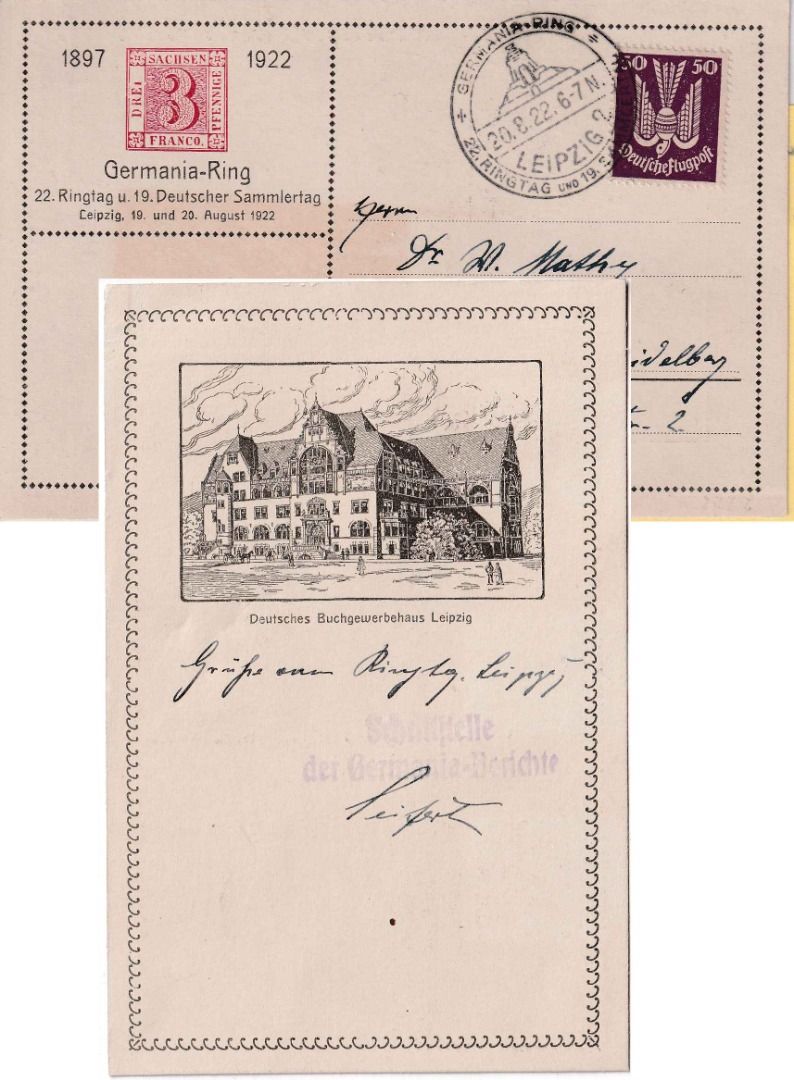 1897
1922
SACHSEN
DREI
3
PFENNIGE
FRANCO.
Germania-Ring
22. Ringtag u. 19. Deutscher Sammlertag
Leipzig, 19. und 20. August 1922
GERMANIA-RING
20.8.22.6-7 N.
LEIPZIG 2
22. RINGTAG UND 19.
50 50
Deutsche Flugpost
Herrn
Dr. W. Mathy
idelberg
2
Deutsches Buchgewerbehaus Leipzig
Grüße vom Ringtag Leipzig
Schriftstelle
der Germania-Berichte
Seifert